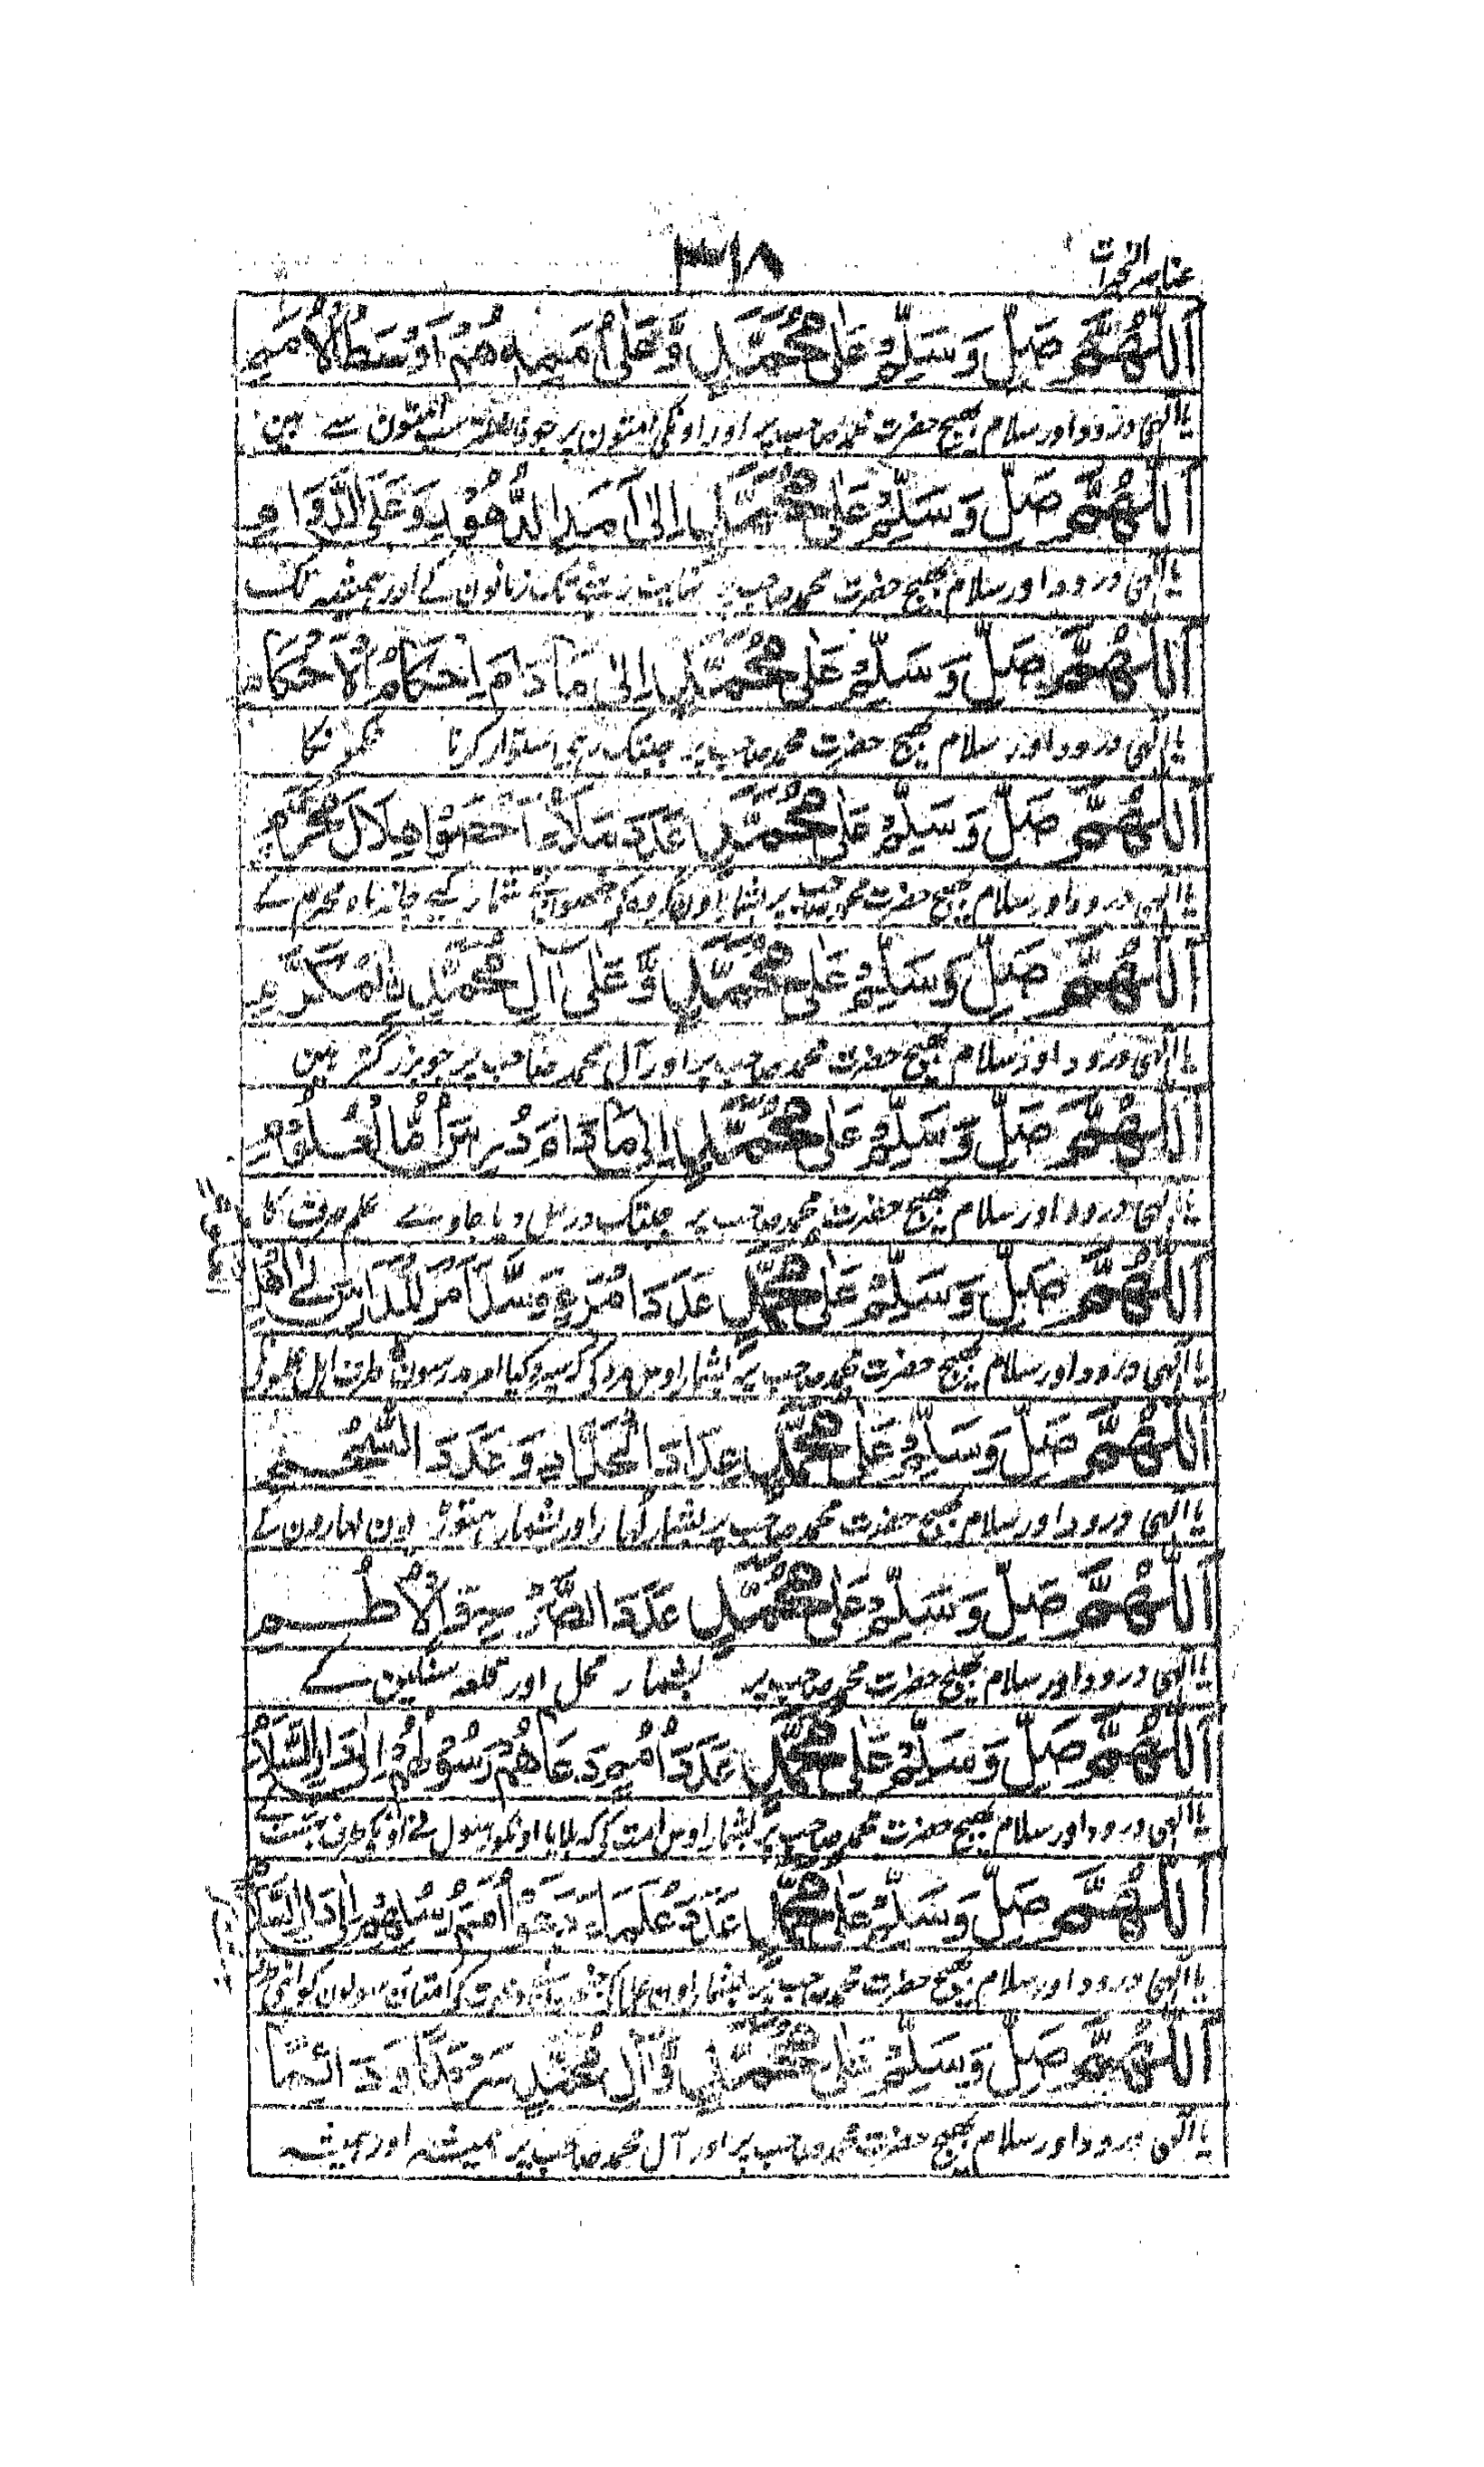 ۳۱۸
اَللّٰهُمَّ صَلِّ وَسَلِّمْ عَلٰى مُحَمَّدٍ وَّعَلٰى اُمَمِهٖ هُمْ اَوْسَطُ الْاُمَمِ
یا الٰہی درود اور سلام بھیج حضرت محمد صاحب پر اور اونکی امتون پر جو سب امتون سے ہین
اَللّٰهُمَّ صَلِّ وَسَلِّمْ عَلٰى مُحَمَّدٍ اِلٰى اَمَدِ الدُّهُوْرِ وَعَلَى الدَّوَامِ
یا الٰہی درود اور سلام بھیج حضرت محمد صاحب پر زمانون کے اور ہمیشہ تک
اَللّٰهُمَّ صَلِّ وَسَلِّمْ عَلٰى مُحَمَّدٍ اِلٰى مَا دَامَ اِحْكَامُ الْاَحْكَامِ
یا الٰہی درود اور سلام بھیج حضرت محمد صاحب پر جبتک رہے استوار کرنا حکمونکا
اَللّٰهُمَّ صَلِّ وَسَلِّمْ عَلٰى مُحَمَّدٍ عَدَدَ مَلَاءٍ اَحْصَوْا هِلَالَ مُحَرَّمٍ
یا الٰہی درود اور سلام بھیج حضرت محمد صاحب پر بشمار اون گروہ کے شمار کیے چاند ماہ محرم کے
اَللّٰهُمَّ صَلِّ وَسَلِّمْ عَلٰى مُحَمَّدٍ وَّعَلٰى اٰلِ مُحَمَّدٍ الْمُكَرَّمِ
یا الٰہی درود اور سلام بھیج حضرت محمد صاحب پر اور آل محمد صاحب پر جو بزرگتر ہین
اَللّٰهُمَّ صَلِّ وَسَلِّمْ عَلٰى مُحَمَّدٍ اِلٰى مَا دَامَ دُرِسَ الْعُلُوْمُ
یا الٰہی درود اور سلام بھیج حضرت محمد صاحب پر جبتک درس دیا جاوے علم کا
اَللّٰهُمَّ صَلِّ وَسَلِّمْ عَلٰى مُحَمَّدٍ عَدَدَ امْرِءٍ وَسَّدَ اَمْرَ الْمَدَارِسِ
یا الٰہی درود اور سلام بھیج حضرت محمد صاحب پر بشمار اوس مرد کی کہ سپرد کیا امر مدرسون کا طرف اہل
اَللّٰهُمَّ صَلِّ وَسَلِّمْ عَلٰى مُحَمَّدٍ عَدَدَ الْحَدَّادِ وَعَدَدَ
یا الٰہی درود اور سلام بھیج حضرت محمد صاحب پر بشمار لہار اور بشمار لہارون کے
اَللّٰهُمَّ صَلِّ وَسَلِّمْ عَلٰى مُحَمَّدٍ عَدَدَ الْاُطُمِ
یا الٰہی درود اور سلام بھیج حضرت محمد صاحب پر بشمار محل اور قلعہ سنگین کے
اَللّٰهُمَّ صَلِّ وَسَلِّمْ عَلٰى مُحَمَّدٍ عَدَدَ اُمَمٍ دَعَاهُمْ رَسُوْلُهُمْ اِلٰى دَارِ السَّلَامِ
یا الٰہی درود اور سلام بھیج حضرت محمد صاحب پر بشمار اوس امت کی کہ بلایا اونکو رسول نے اونکے طرف بہشت کے
اَللّٰهُمَّ صَلِّ وَسَلِّمْ عَلٰى مُحَمَّدٍ عَدَدَ عُلَمَاءَ دَعَوْا اُمَمَ رُسُلِهِمْ اِلٰى دَارِ السَّلَامِ
یا الٰہی درود اور سلام بھیج حضرت محمد صاحب پر بشمار اون
اَللّٰهُمَّ صَلِّ وَسَلِّمْ عَلٰى مُحَمَّدٍ وَّاٰلِ مُحَمَّدٍ سَرْمَدًا وَدَائِمًا
یا الٰہی درود اور سلام بھیج حضرت محمد صاحب پر اور آل محمد صاحب پر ہمیشہ اور ہمیشہ